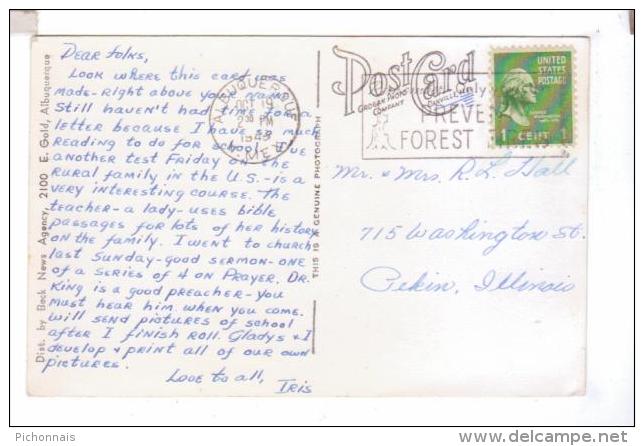 Dear folks,
Look where this card was
made-right above your name.
Still haven't had time for a
letter because I have so much
reading to do for school. I've
another test Friday on the
Rural family in the U.S.-is a
very interesting course. The
teacher-a lady-uses bible
passages for lots of her history
on the family. I went to church
last Sunday-good sermon-one
of a series of 4 on Prayer. Dr.
King is a good preacher-you
must hear him when you come.
Will send pictures of school
after I finish roll. Gladys & I
develop & print all of our own
pictures.
Love to all,
Iris
Dist. by Beck News Agency, 2100 E. Gold, Albuquerque
THIS IS A GENUINE PHOTOGRAPH
Post Card
GROGAN PHOTO
COMPANY
DANVILLE, ILL.
Only
ALBUQUERQUE
OCT 19
2 30 PM
MEX.
PREVE
FOREST
UNITED
STATES
POSTAGE
1 CENT 1
Mr. & Mrs. R.L. Hall
715 Washington St.
Pekin, Illinois
Pichonnais
http://www.delcampe.net